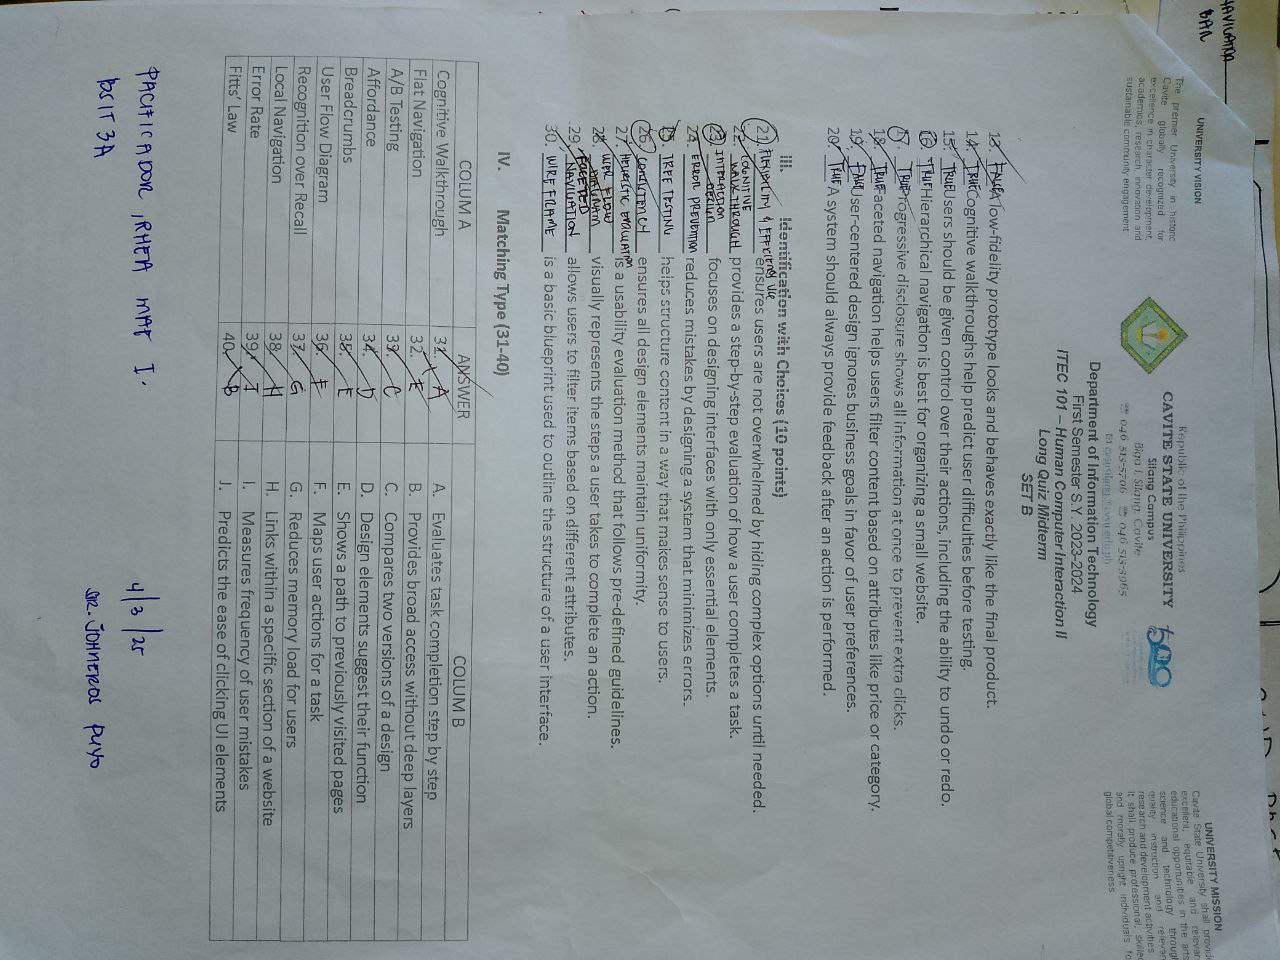 NAVIGATION
BAR
UNIVERSITY VISION
The premier University in historic
Cavite globally recognized for
excellence in character development,
academics, research, innovation and
sustainable community engagement
Republic of the Philippines
CAVITE STATE UNIVERSITY
Silang Campus
Biga I, Silang, Cavite
046 513-5706 046 513-3965
cvsusilang@cvsu.edu.ph
UNIVERSITY MISSION
Cavite State University shall provide
excellent, equitable and relevant
educational opportunities in the arts,
science and technology through
quality instruction and relevant
research and development activities.
It shall produce professional, skilled
and morally upright individuals for
global competitiveness
Department of Information Technology
First Semester S.Y. 2023-2024
ITEC 101 – Human Computer Interaction II
Long Quiz Midterm
SET B
13. FALSE A low-fidelity prototype looks and behaves exactly like the final product.
14. TRUE Cognitive walkthroughs help predict user difficulties before testing.
15. TRUE Users should be given control over their actions, including the ability to undo or redo.
16. TRUE Hierarchical navigation is best for organizing a small website.
17. TRUE Progressive disclosure shows all information at once to prevent extra clicks.
18. TRUE Faceted navigation helps users filter content based on attributes like price or category.
19. FALSE User-centered design ignores business goals in favor of user preferences.
20. TRUE A system should always provide feedback after an action is performed.
III. Identification with Choices (10 points)
21. FLEXIBILITY & EFFICIENCY USE ensures users are not overwhelmed by hiding complex options until needed.
22. COGNITIVE WALKTHROUGH provides a step-by-step evaluation of how a user completes a task.
23. INTERACTION DESIGN focuses on designing interfaces with only essential elements.
24. ERROR PREVENTION reduces mistakes by designing a system that minimizes errors.
25. TREE TESTING helps structure content in a way that makes sense to users.
26. CONSISTENCY ensures all design elements maintain uniformity.
27. HEURISTIC EVALUATION is a usability evaluation method that follows pre-defined guidelines.
28. USER FLOW DIAGRAM visually represents the steps a user takes to complete an action.
29. FACETED NAVIGATION allows users to filter items based on different attributes.
30. WIRE FRAME is a basic blueprint used to outline the structure of a user interface.
IV. Matching Type (31-40)
COLUM A ANSWER COLUM B
Cognitive Walkthrough 31. A A. Evaluates task completion step by step
Flat Navigation 32. E B. Provides broad access without deep layers
A/B Testing 33. C C. Compares two versions of a design
Affordance 34. D D. Design elements suggest their function
Breadcrumbs 35. E E. Shows a path to previously visited pages
User Flow Diagram 36. F F. Maps user actions for a task
Recognition over Recall 37. G G. Reduces memory load for users
Local Navigation 38. H H. Links within a specific section of a website
Error Rate 39. I I. Measures frequency of user mistakes
Fitts' Law 40. B J. Predicts the ease of clicking UI elements
PACIFICADOR, RHEA MAE I.
BSIT 3A
4/3/25
SIR. JOHNEROS PUYO